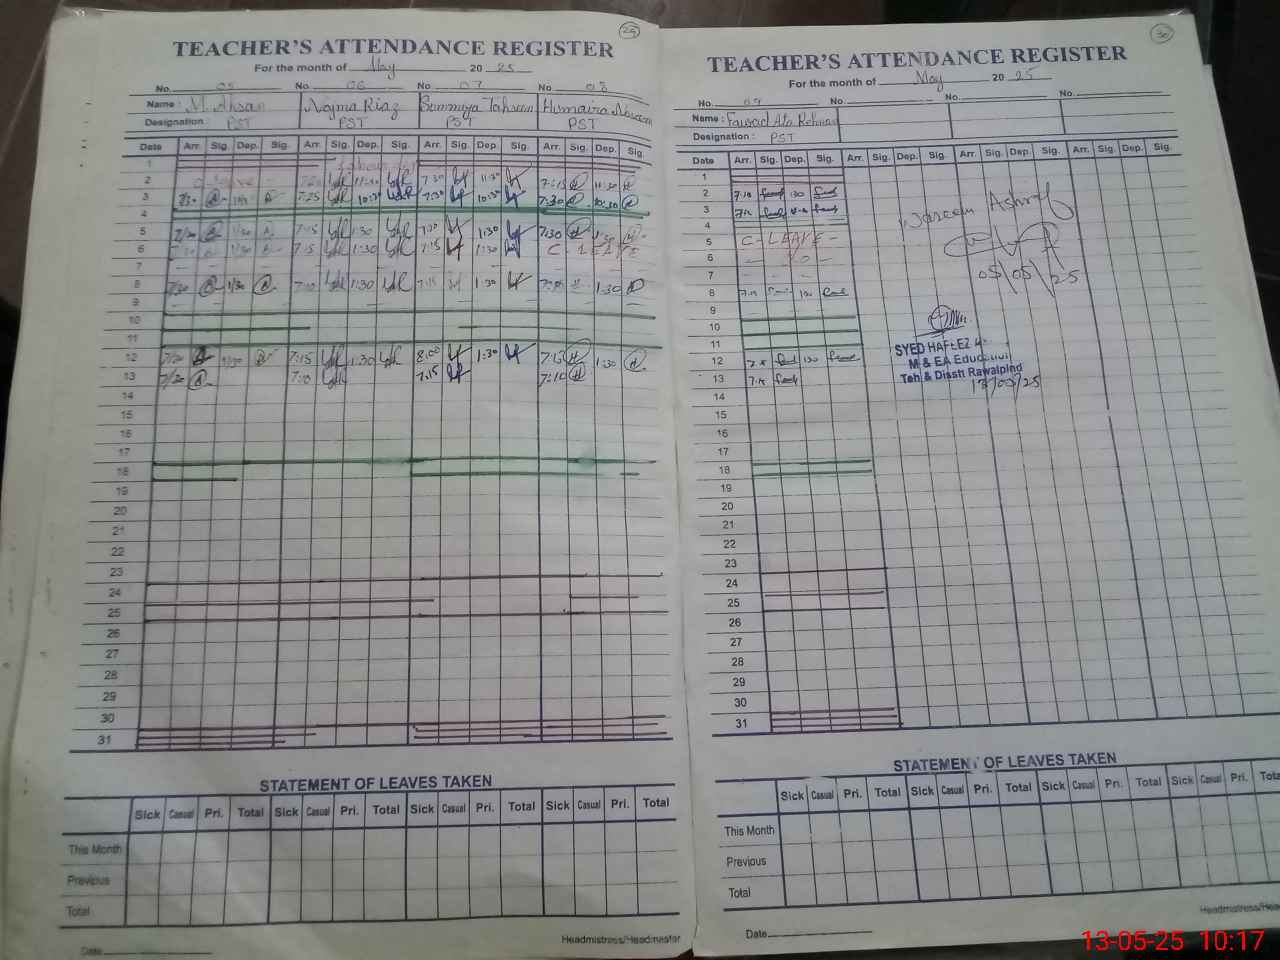 29
TEACHER'S ATTENDANCE REGISTER
For the month of May 2025
No. 05 No. 06 No. 07 No. 08
Name : M. Ahsan Najma Riaz Summiya Tahseen Humaira Noreen
Designation : PST PST PST PST
Date Arr. Sig. Dep. Sig. Arr. Sig. Dep. Sig. Arr. Sig. Dep. Sig. Arr. Sig. Dep. Sig.
1
2 11:30 7:30 11:30 7:15 11:30
3 7:25 10:30 7:30 10:30 7:30 10:30
4
5 7/30 1/30 7:15 1:30 1:30 7:30 1:30
6 1/30 7:15 1:30 7:15 1:30 C - LEAVE
7
8 7/30 1/30 7:10 1:30 7:15 1:30 1:30
9
10
11
12 7/30 1/30 7:15 1:30 8:00 1:30 7:15 1:30
13 7/30 7:10 7:15 7:10
14
15
16
17
18
19
20
21
22
23
24
25
26
27
28
29
30
31
STATEMENT OF LEAVES TAKEN
Sick Casual Pri. Total Sick Casual Pri. Total Sick Casual Pri. Total Sick Casual Pri. Total
This Month
Previous
Total
Date
Headmistress/Headmaster
30
TEACHER'S ATTENDANCE REGISTER
For the month of May 2025
No. 09 No. No. No.
Name : Fawad Ata Rehman
Designation : PST
Date Arr. Sig. Dep. Sig. Arr. Sig. Dep. Sig. Arr. Sig. Dep. Sig. Arr. Sig. Dep. Sig.
1
2
3
4
5 C - LEAVE -
6
7
8
9
10
11
12
13
14
15
16
17
18
19
20
21
22
23
24
25
26
27
28
29
30
31
Waseem Ashraf
05/05/25
SYED HAFEEZ
M & EA Educational
Teh & Disstt Rawalpind
13/05/25
STATEMENT OF LEAVES TAKEN
Sick Casual Pri. Total Sick Casual Pri. Total Sick Casual Pri. Total Sick Casual Pri. Total
This Month
Previous
Total
Date
Headmistress/Hea
13-05-25 10:17